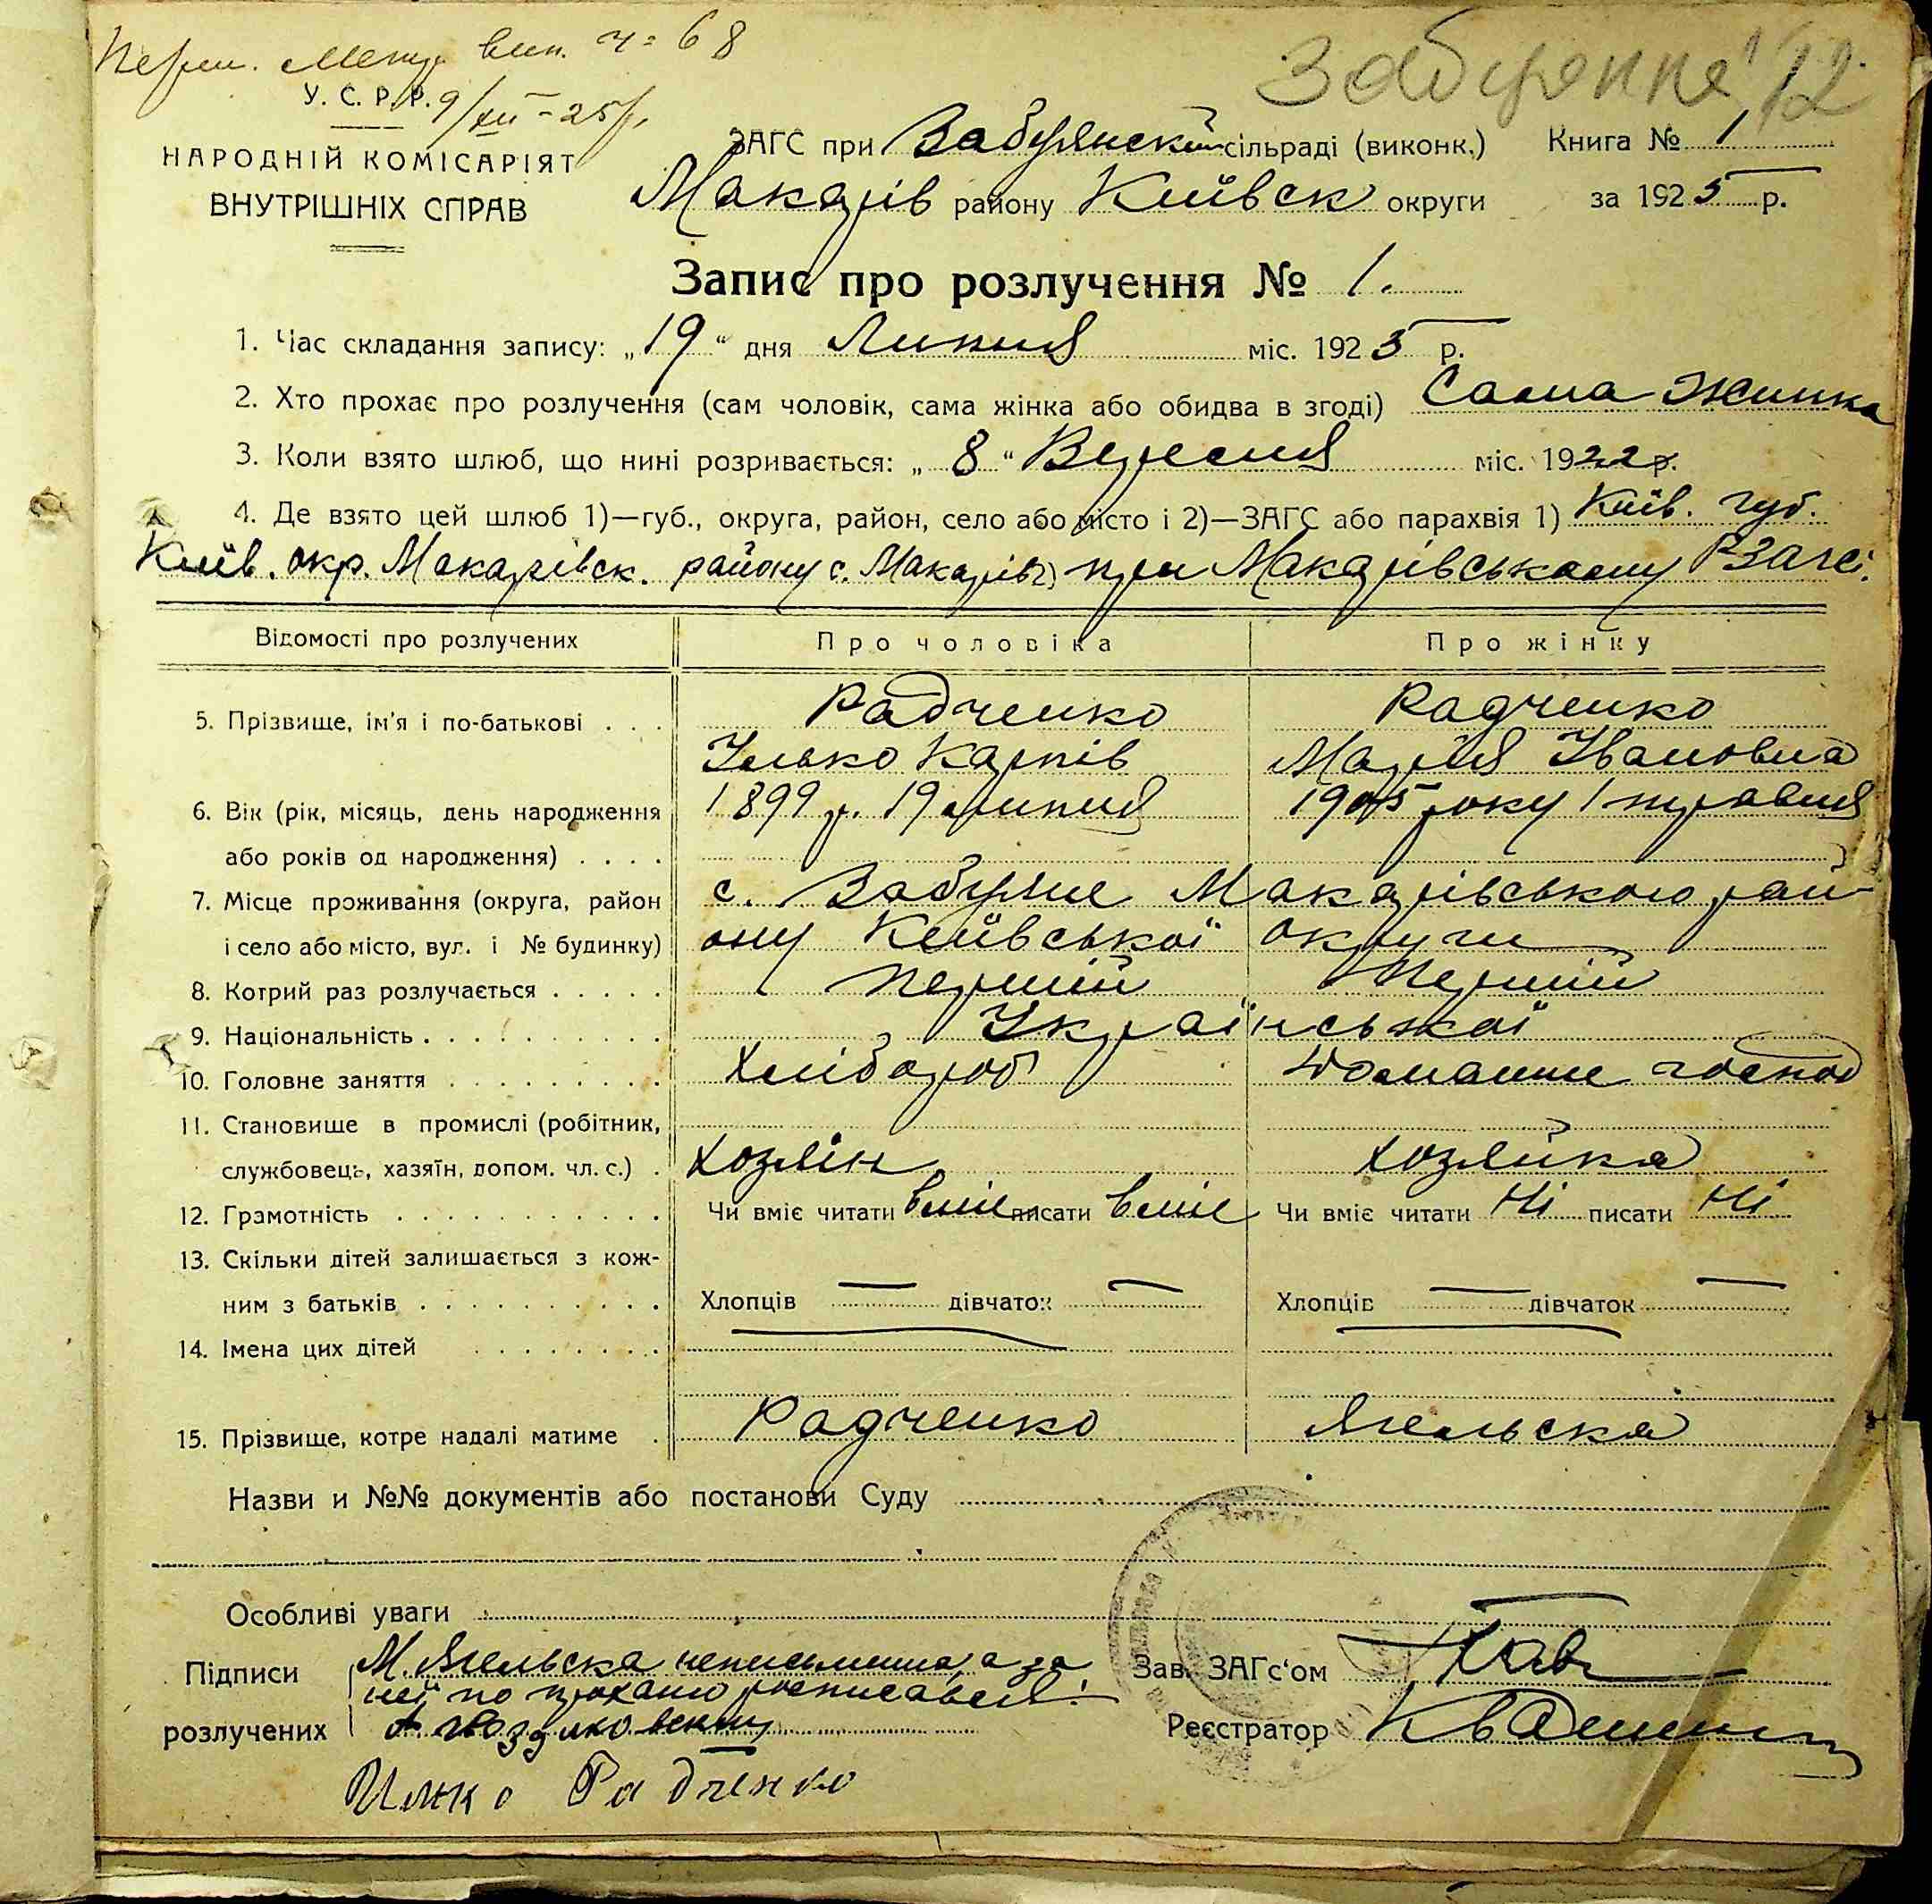 Забуяння 12
вип. ч. 68
У. С. Р. Р. 9/XII-25 р.
НАРОДНІЙ КОМІСАРІЯТ
ВНУТРІШНІХ СПРАВ
ЗАГС при Забуянскій сільраді (виконк.) Книга № 1
Макарів району Київск округи за 1925 р.
Запис про розлучення № 1.
1. Час складання запису: „19“ дня Липня міс. 1925 р.
2. Хто прохає про розлучення (сам чоловік, сама жінка або обидва в згоді) Сама Жинка
3. Коли взято шлюб, що нині розривається: „8“ Вересня міс. 1922 р.
4. Де взято цей шлюб 1)—губ., округа, район, село або місто і 2)—ЗАГС або парахвія 1) Київ. губ.
Київ. окр. Макарівск. району с. Макарів 2) при Макарівському РЗАГСі.
Відомості про розлучених Про чоловіка Про жінку
5. Прізвище, ім'я і по-батькові . . . Радченко Радченко
Ілько Карпів Марія Івановна
6. Вік (рік, місяць, день народження 1899 р. 19 липня 1905 року 1 травня
або років од народження) . . . .
7. Місце проживання (округа, район с. Забуяне Макарівського рай-
і село або місто, вул. і № будинку) ону Київської округи
8. Котрий раз розлучається . . . . . Перший Перший
9. Національність . . . . . . . . . . Української
10. Головне заняття . . . . . . . . . Хлібороб Домашне господ
11. Становище в промислі (робітник,
службовець, хазяїн, допом. чл. с.) . Хозяїн Хозяйка
12. Грамотність . . . . . . . . . . . . Чи вміє читати вміє писати вміє Чи вміє читати Ні писати Ні
13. Скільки дітей залишається з кож-
ним з батьків . . . . . . . . . . . Хлопців — дівчаток — Хлопців — дівчаток —
14. Імена цих дітей . . . . . . . . —— ——
15. Прізвище, котре надалі матиме . Радченко Ягельска
Назви и №№ документів або постанови Суду
Особливі уваги
Підписи М. Ягельска неписьменна, а за Зав. ЗАГс'ом
неї по проханю росписався:
розлучених Реєстратор
Илжко Радченко